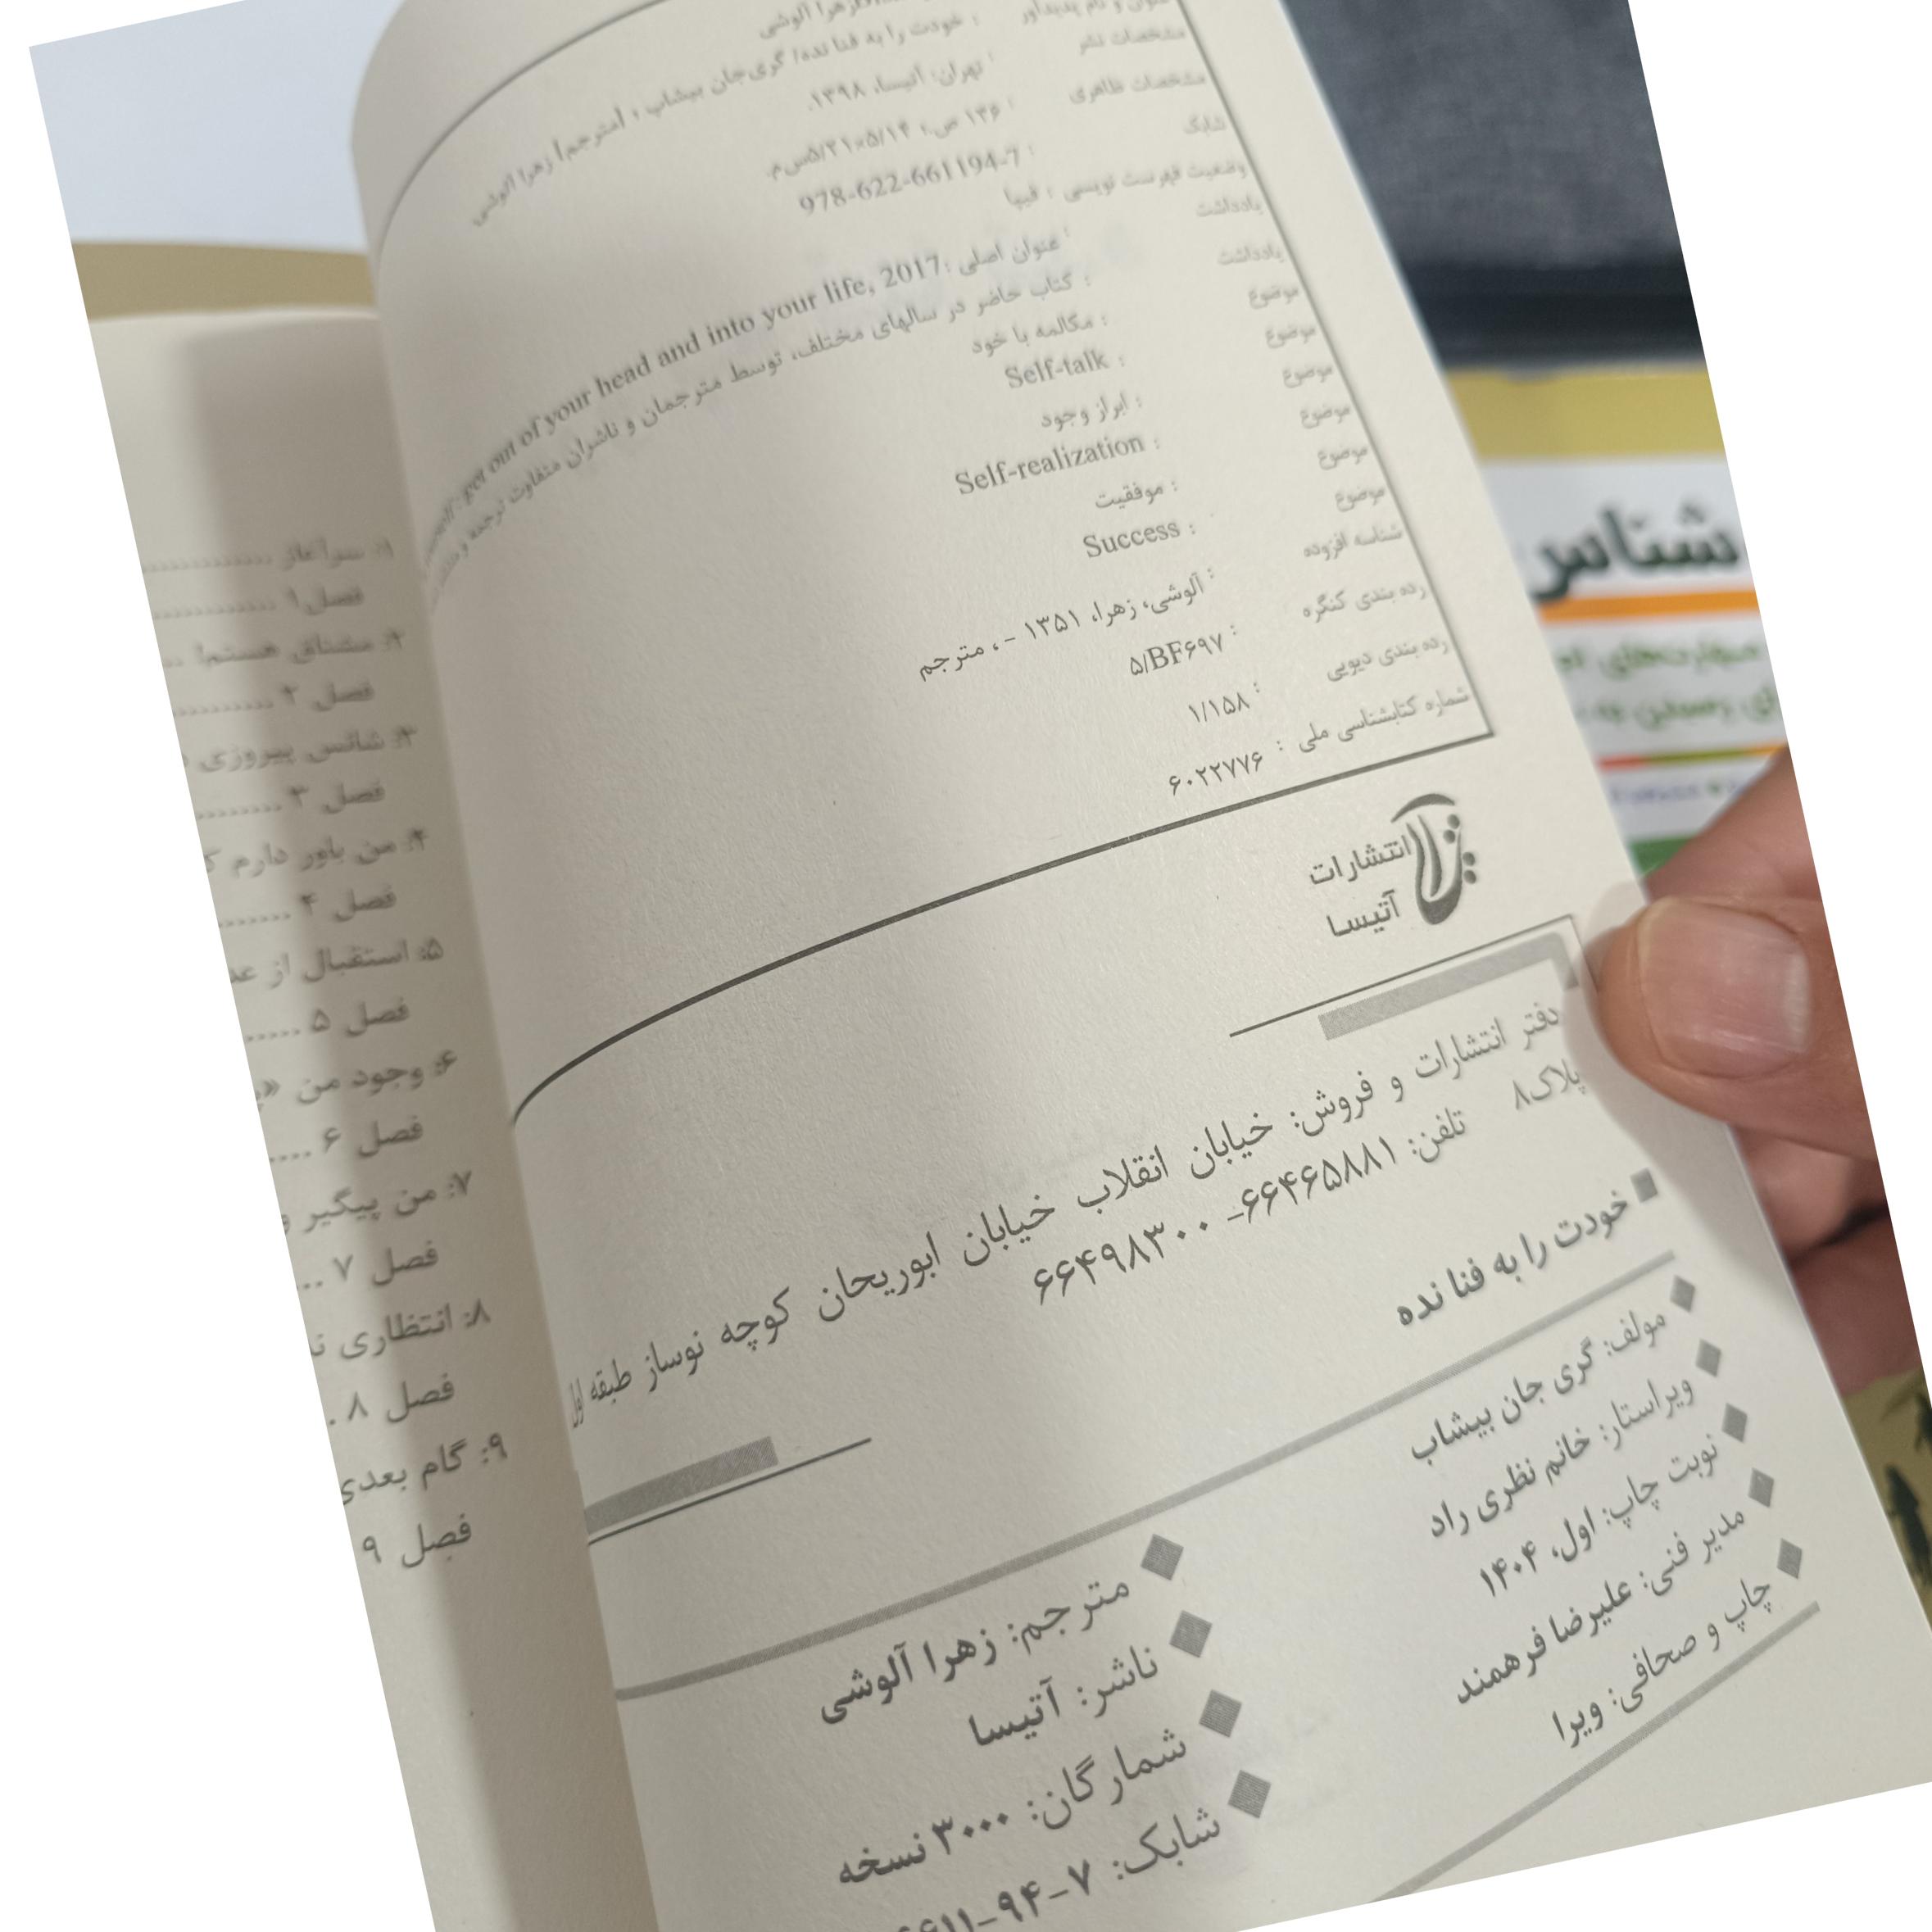 عنوان و نام پدیدآور : خودت را به فنا نده/ گری‌جان بیشاپ ؛ [مترجم] زهرا آلوشی
مشخصات نشر : تهران: آتیسا، ۱۳۹۸.
مشخصات ظاهری : ۱۳۶ ص.؛ ۵/۱۴×۵/۲۱س‌م.
شابک : 978-622-661194-7
وضعیت فهرست نویسی : فیپا
یادداشت : عنوان اصلی: get out of your head and into your life, 2017
یادداشت : کتاب حاضر در سالهای مختلف، توسط مترجمان و ناشران متفاوت ترجمه و
موضوع : مکالمه با خود
موضوع : Self-talk
موضوع : ابراز وجود
موضوع : Self-realization
موضوع : موفقیت
موضوع : Success
شناسه افزوده : آلوشی، زهرا، ۱۳۵۱ - ، مترجم
رده بندی کنگره : ۵/BF۶۹۷
رده بندی دیویی : ۱/۱۵۸
شماره کتابشناسی ملی : ۶۰۲۲۷۷۶
انتشارات
آتیسا
دفتر انتشارات و فروش: خیابان انقلاب خیابان ابوریحان کوچه نوساز طبقه اول
پلاک۸ تلفن: ۶۶۴۶۵۸۸۱- ۶۶۴۹۸۳۰۰
خودت را به فنا نده
مولف: گری جان بیشاب
ویراستار: خانم نظری راد
نوبت چاپ: اول، ۱۴۰۴
مدیر فنی: علیرضا فرهمند
چاپ و صحافی: ویرا
مترجم: زهرا آلوشی
ناشر: آتیسا
شمارگان: ۳۰۰۰ نسخه
شابک: ۷-۹۴-۶۶۱۱
۱: سرآغاز
فصل ۱
۲: مشتاق هستم!
فصل ۲
۳: شانس پیروزی
فصل ۳
۴: من باور دارم
فصل ۴
۵: استقبال از
فصل ۵
۶: وجود من
فصل ۶
۷: من پیگیر
فصل ۷
۸: انتظاری
فصل ۸
۹: گام بعدی
فصل ۹
شناس